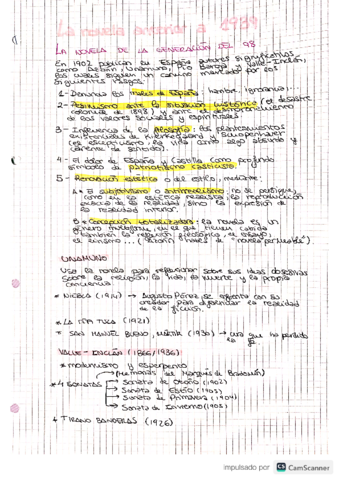 La novela anterior a 1939
LA NOVELA DE LA GENERACIÓN DEL 98
En 1902 publican en España autores significativos,
como Azorín, Unamuno, Pío Baroja y Valle-Inclán,
los cuales siguen un camino marcado por los
siguientes rasgos:
1- Denuncia los males de España: hambre, ignorancia...
2- Pesimismo ante la situación histórica (el desastre
colonial de 1898) y ante el
de los valores sociales y espirituales.
3- Influencia de la filosofía: los planteamientos
existenciales de Kierkegaard y Schopenhauer
(el escepticismo, la vida como algo absurdo y
carente de sentido).
4- El dolor de España y Castilla como profundo
símbolo de patriotismo castizo.
5- Renovación estética o del estilo, mediante:
A* El subjetivismo o antirrealismo: no se persigue,
como en la estética realista, la reproducción
exacta de la realidad, sino la expresión de
la realidad interior.
B* Concepción totalizadora: la novela es un
género multiforme, en el que tienen cabida
también la reflexión filosófica, el ensayo,
el lirismo... ( de "novela permeable").
UNAMUNO
Usa la novela para reflexionar sobre sus ideas obsesivas
sobre la religión, la vida, la muerte y la propia
conciencia
* NIEBLA (1914) → Augusto Pérez se enfrenta con su
creador para diferenciar la realidad
de la ficción.
* LA TÍA TULA (1921)
* SAN MANUEL BUENO, MÁRTIR (1930) → cura que ha perdido
la fe
VALLE-INCLÁN (1866/1936)
* modernismo y esperpento
→ (memorias del Marqués de Bradomín)
* 4 SONATAS → Sonata de Otoño (1902)
→ Sonata de Estío (1903)
→ Sonata de Primavera (1904)
→ Sonata de Invierno (1905)
* TIRANO BANDERAS (1926)
impulsado por CS CamScanner